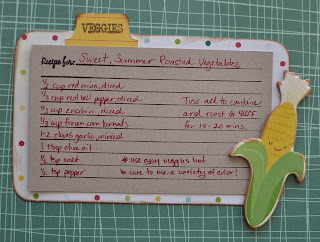 VEGGIES
Recipe for: Sweet, Summer Roasted Vegetables
1/2 cup red onion, diced
1/3 cup red bell pepper, diced
1/3 cup zucchini, diced
1/3 cup frozen corn kernels
1-2 cloves garlic, minced
1 tbsp olive oil
1/2 tsp salt
1/2 tsp pepper
Toss all to combine
and roast @ 400°F
for 15-20 mins.
* use any veggies but
be sure to use a variety of color!